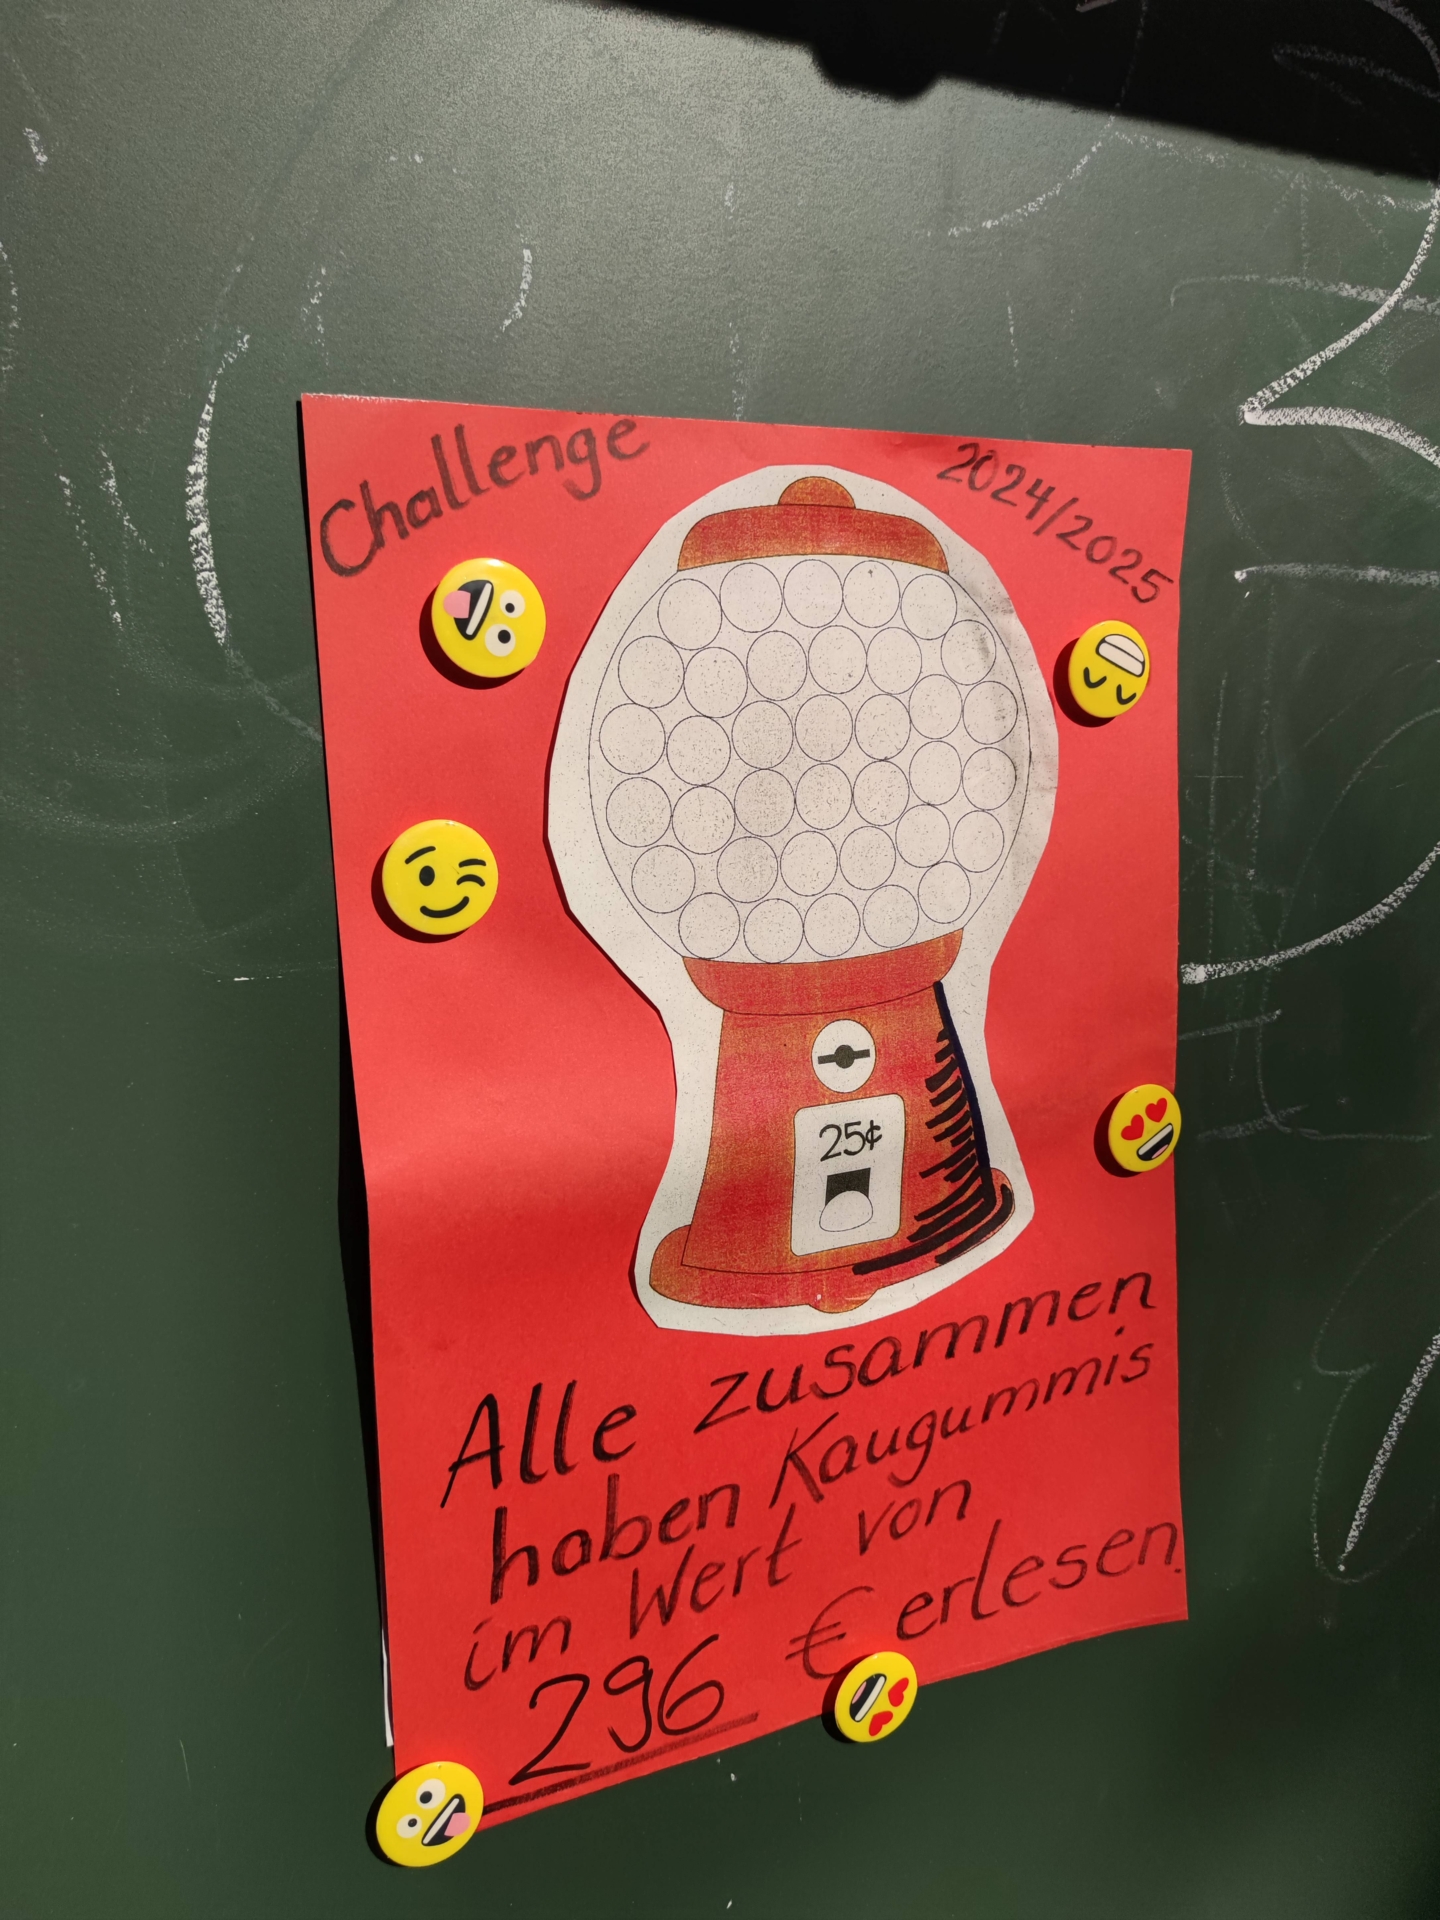 Challenge
2024/2025
25¢
Alle zusammen
haben Kaugummis
im Wert von
296 € erlesen.